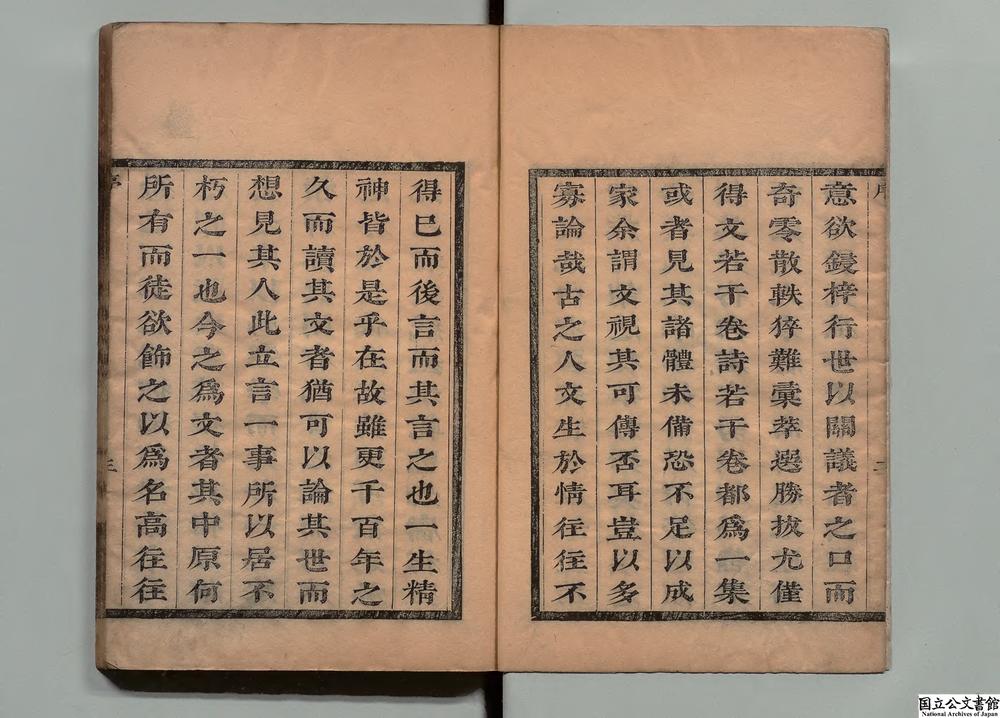 序
二
意欲鋟梓行世以關議者之口而
奇零散軼猝難彚萃選勝拔尤僅
得文若干卷詩若干卷都爲一集
或者見其諸體未備恐不足以成
家余謂文視其可傳否耳豈以多
寡論哉古之人文生於情往往不
得已而後言而其言之也一生精
神皆於是乎在故雖更千百年之
久而讀其文者猶可以論其世而
想見其人此立言一事所以居不
朽之一也今之爲文者其中原何
所有而徒欲飾之以爲名高往往
序
三
国立公文書館
National Archives of Japan